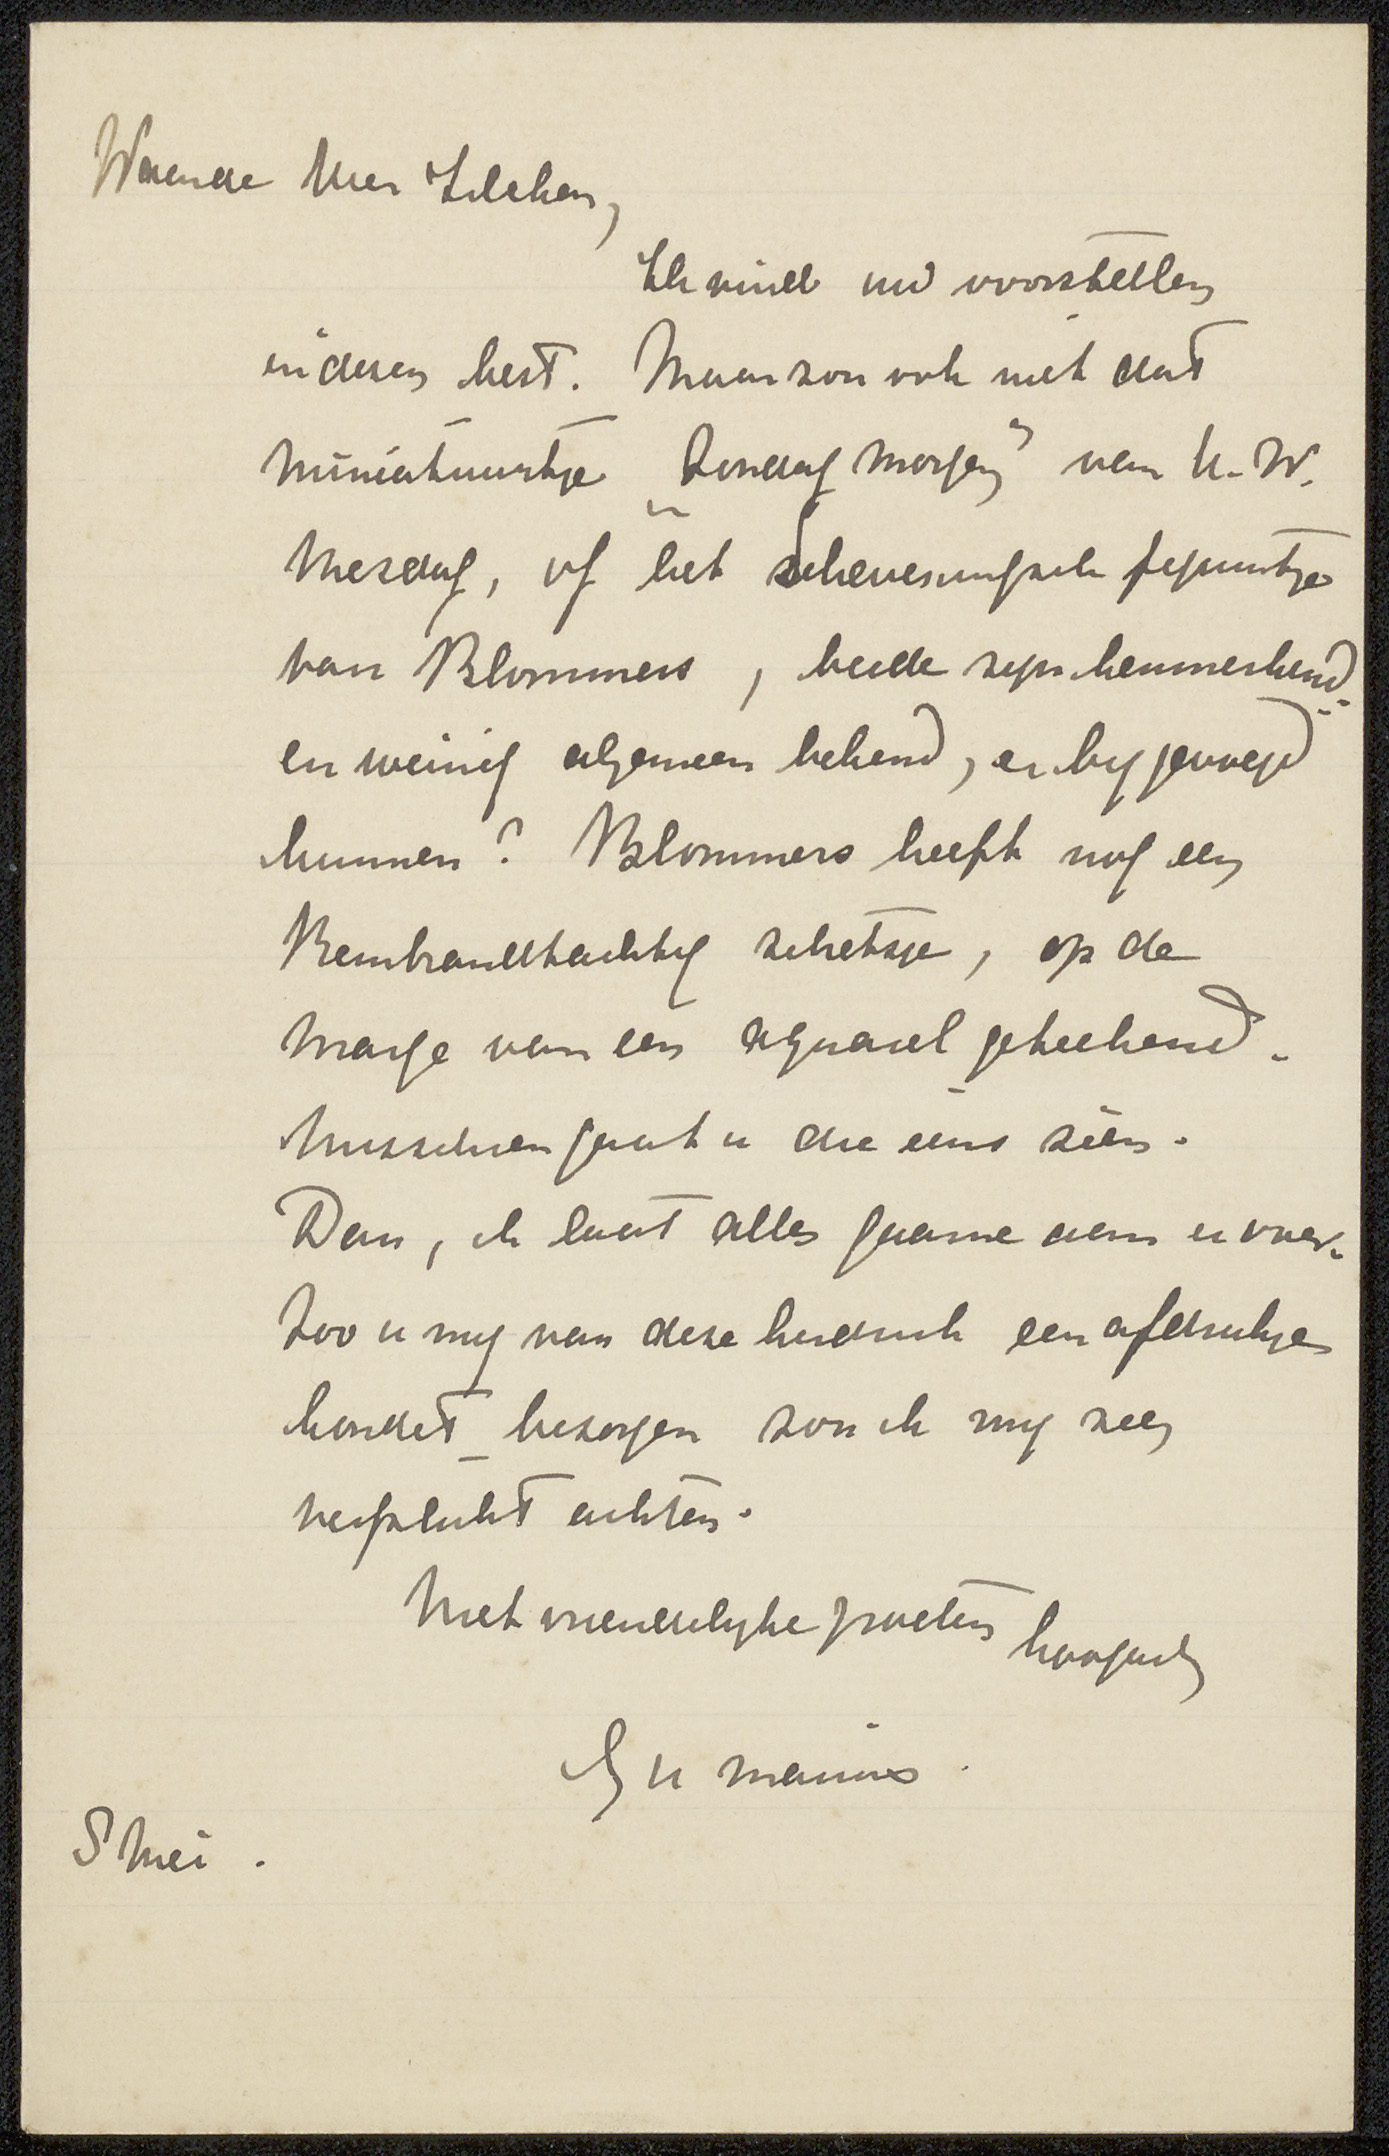 Waarde Heer Zilcken,
Ik vind uw voorstellen
in dezen best. Maar zou ook niet dat
miniatuurtje „Zondag morgen” van H. W.
Mesdag, of het Scheveningsch figuurtje
van Blommers, beide zijn kenmerkend
en weinig algemeen bekend, er bij gevoegd
kunnen? Blommers heeft nog een
Rembrandtachtig schetsje, op de
marge van een aquarel geteekend.
Misschien gaat u die eens zien.
Dan, ik laat alles gaarne aan u over.
Zoo u mij van deze herdruk een afdrukje
kondet bezorgen zou ik mij zeer
verplicht achten.
Met vriendelijke groeten hoogach
G H Marius.
8 Mei.